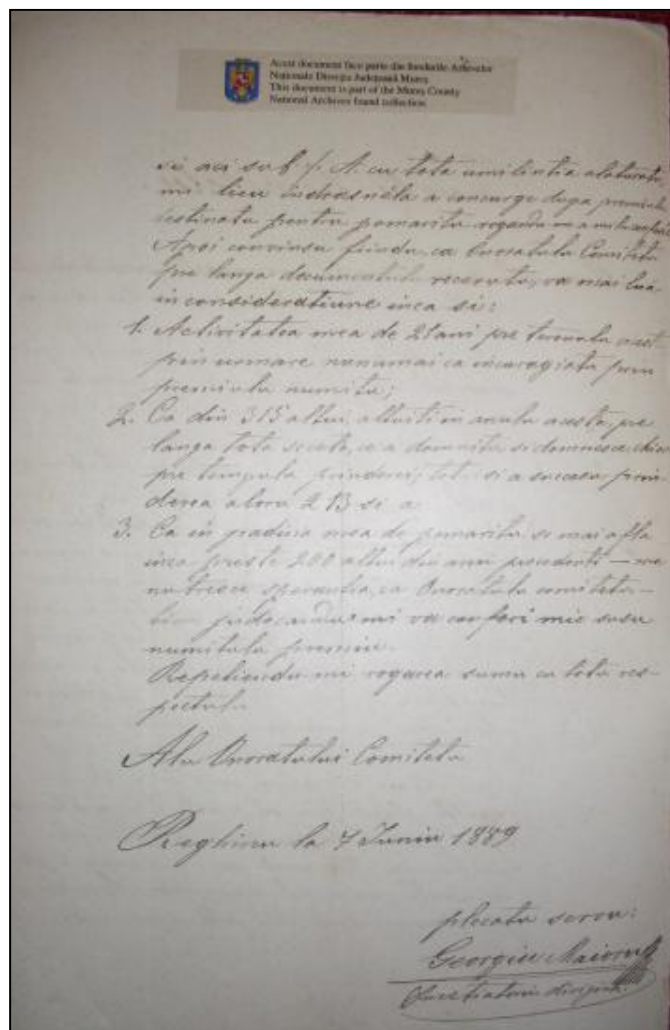 Acest document face parte din fondurile Arhivelor
Naționale Direcția Județeană Mureș
This document is part of the Mureș County
National Archives found collection
si aci sub /. A. cu tota umilintia alaturatu
mi lieu indrasnéla a concurge dupa premiulu
destinatu pentru pomaritu rogandu
Apoi convinsu fiindu, ca Onoratulu Comitetu
pre langa documentulu recerutu, va mai luá
in consideratiune inca si:
1. Activitatea mea de ani pre terenulu acest
prin urmare numai ca incuragiatu prin
premiulu numitu;
2. Ca din 315 altui, altuiti in anulu acesta, pre
langa tota seceta, ce a domnitu si domnesce chiar
pre tempulu prinderei, totusi a succesu prin-
derea alora 213 si a
3. Ca in gradina mea de pomaritu se mai afla
inca preste 200 altui din anii precedenti — me
nutresce sperantia, ca Onoratulu comitetu —
bine judecandu mi va conferi mie susu
numitulu premiu.
Repetiendu-mi rogarea sumu cu totu res-
pectulu
Alu Onoratului Comitetu
Reghinu la 7 Juniu 1889
plecatu servu:
Georgiu Maioru